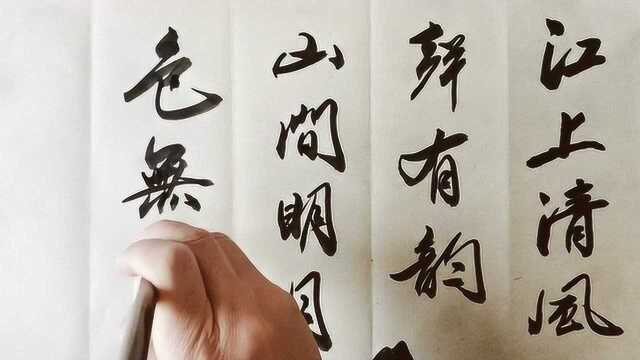 江上清風
有韵
山間明月
色無